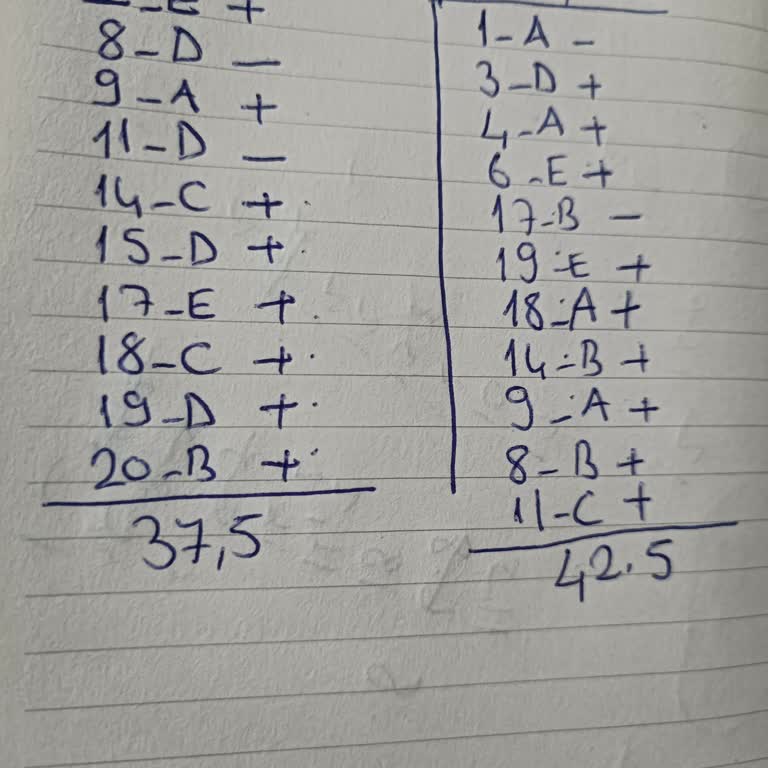 E +
8-D -
9-A +
11-D -
14-C +
15-D +
17-E +
18-C +
19-D +
20-B +
37,5
1-A -
3-D +
4-A +
6-E +
17-B -
19-E +
18-A +
14-B +
9-A +
8-B +
11-C +
42.5